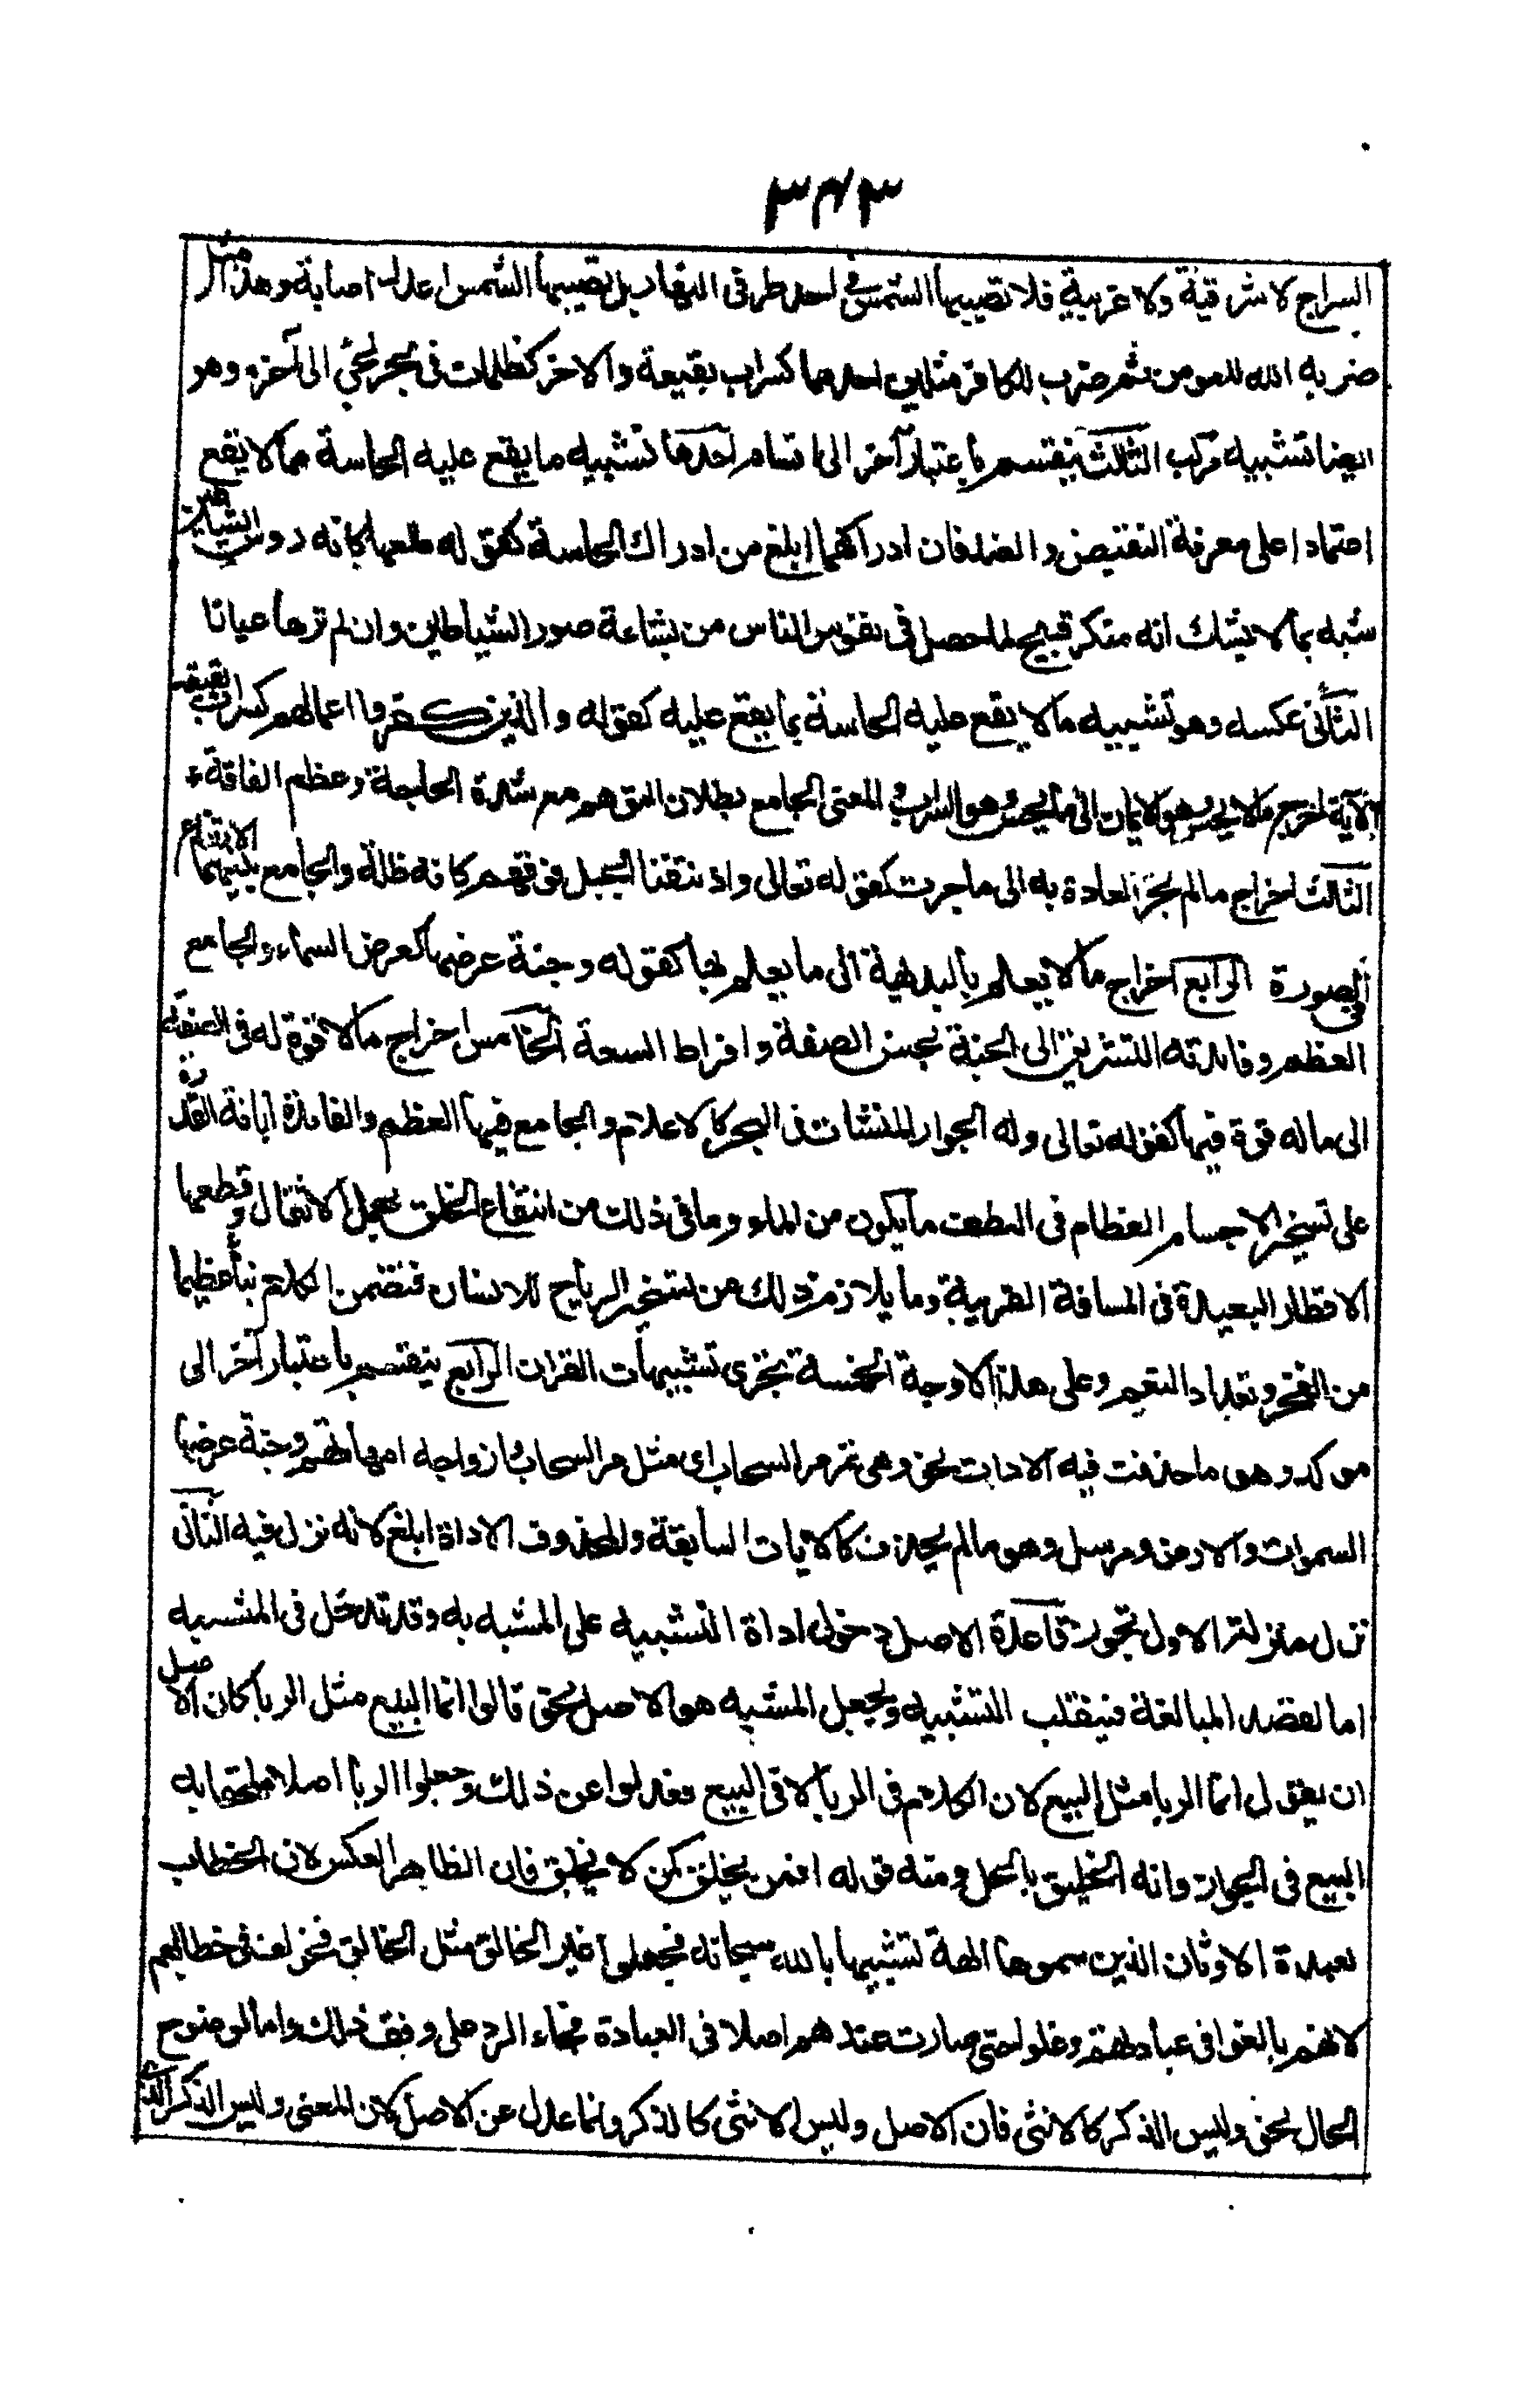 ٣٤٣
السراج لا شرقية ولا غربية فلا تصيبها الشمس في احد طرفى النهار بل تصيبها الشمس اعدل اصابة وهذا مثل
ضربه الله للمومن ثم ضرب للكافر مثلين احدهما كسراب بقيعة والاخر كظلمات فى بحر لجي الى آخره وهو
ايضا تشبيه تركيب الثالث ينقسم باعتبار آخر الى اقسام احدها تشبيه ما يقع عليه الحاسة بما لا يقع
اعتمادا على معرفة النقيض والضد فان ادراكهما ابلغ من ادراك الحاسة كقوله طلعها كانه روس الشياطين
شبه بما لا يشك انه منكر قبيح لما حصل فى نفوس الناس من بشاعة صور الشياطين وان لم ترها عيانا
الثانى عكسه وهو تشبيه ما لا يقع عليه الحاسة بما يقع عليه كقوله والذين كفروا اعمالهم كسراب بقيعة
الآية اخرج ما لا يحس وهو الايمان الى ما يحس وهو السراب والمعنى الجامع بطلان التوهم مع شدة الحاجة وعظم الفاقة
الثالث اخراج ما لم تجر العادة به الى ما جرت كقوله تعالى واذ نتقنا الجبل فوقهم كانه ظلة والجامع بينهما الارتفاع
فى الصورة الرابع اخراج ما لا يعلم بالبديهة الى ما يعلم بها كقوله وجنة عرضها كعرض السماء والجامع
العظم وفائدته التشريق الى الجنة بحسن الصفة وافراط السعة الخامس اخراج ما لا قوة له فى الصفة
الى ما له قوة فيها كقوله تعالى وله الجوار المنشات فى البحر كالاعلام والجامع فيها العظم والفائدة ابانة القدرة
على تسخير الاجسام العظام فى الطف ما يكون من الماء وما فى ذلك من انتفاع الخلق بحمل الاثقال وقطعها
الاقطار البعيدة فى المسافة القريبة وما يلازم ذلك من تسخير الرياح للانسان فتضمن الكلام نبأ عظيما
من الفخر وتعداد النعيم وعلى هذا الاوجة الخمسة تجرى تشبيهات القران الرابع ينقسم باعتبار آخر الى
موكد وهو ما حذفت فيه الادات نحو وهى تمر مر السحاب اى مثل مر السحاب وازواجه امهاتهم وجنة عرضها
السموات والارض ومرسل وهو ما لم يحذف كالايات السابقة والمحذوف الاداة ابلغ لانه نزل فيه الثانى
نزل منزلة الاول تجوزا قاعدة الاصل دخول اداة التشبيه على المشبه به وقد تدخل فى المشبه
اما لقصد المبالغة فينقلب التشبيه ويجعل المشبه هو الاصل نحو قالوا انما البيع مثل الربا كان الاصل
ان يقول انما الربا مثل البيع لان الكلام فى الربا لا فى البيع فعدلوا عن ذلك وجعلوا الربا اصلا ملحقا به
البيع فى الجواز وانه الخليق بالحل ومنه قوله افمن يخلق كمن لا يخلق فان الظاهر العكس لان الخطاب
لعبدة الاوثان الذين سموها الهة تشبيها بالله سبحانه فجعلوا غير الخالق مثل الخالق فخولف فى خطابهم
لانهم بالغوا فى عبادتهم وغلوا حتى صارت عندهم اصلا فى العبادة فجاء الرد على وفق ذلك واما لوضوح
الحال نحو وليس الذكر كالانثى فان الاصل وليس الانثى كالذكر وانما عدل عن الاصل لان المعنى وليس الذكر الذى